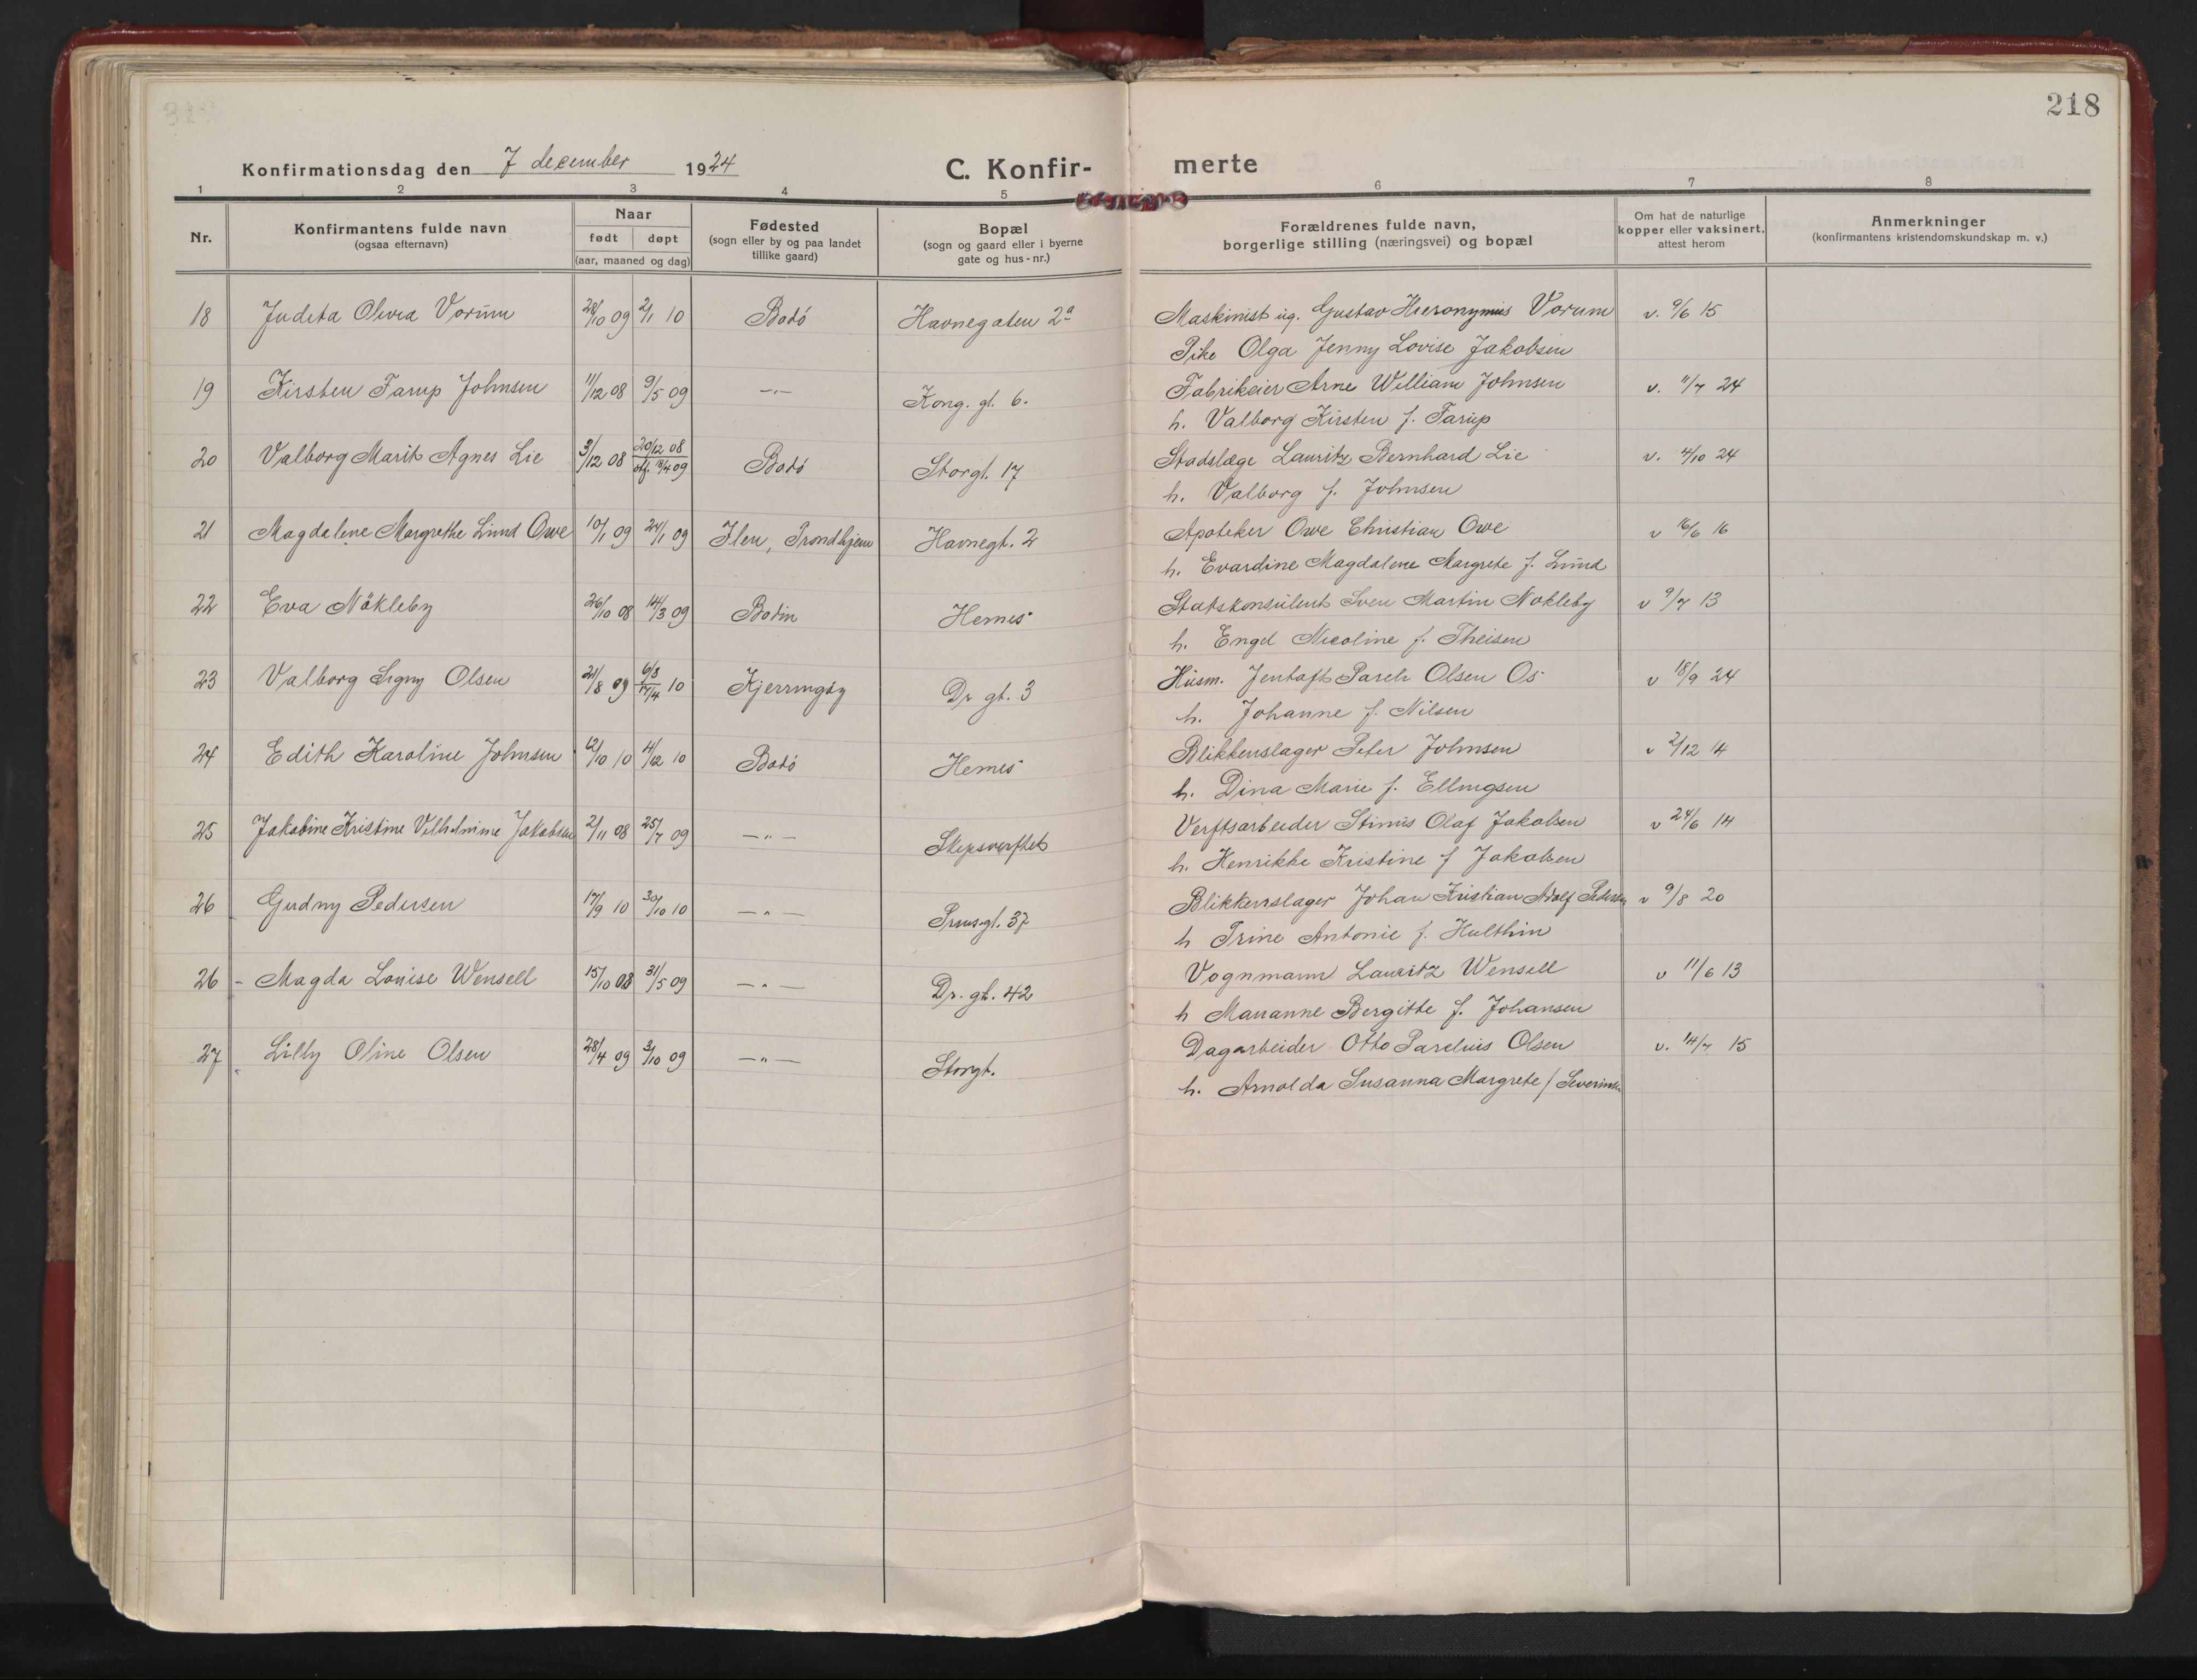 218
Konfirmationsdag den 7 december 1924
C. Konfir- merte
1 2 3 4 5 6 7 8
Nr.
Konfirmantens fulde navn
(ogsaa efternavn)
Naar
født døpt
(aar, maaned og dag)
Fødested
(sogn eller by og paa landet
tillike gaard)
Bopæl
(sogn og gaard eller i byerne
gate og hus-nr.)
Forældrenes fulde navn,
borgerlige stilling (næringsvei) og bopæl
Om hat de naturlige
kopper eller vaksinert,
attest herom
Anmerkninger
(konfirmantens kristendomskundskap m. v.)
18 Judita Olivia Vorum 28/10 09 2/1 10 Bodó Havnegaten 2a Maskinist ug. Gustav Hieronymus Vorum v. 9/6 15
Pike Olga Jenny Lovise Jakobsen
19 Kirsten Farup Johnsen 11/12 08 9/5 09 —"— Kong. gt. 6. Fabrikeier Arne William Johnsen v. 11/7 24
h. Valborg Kirsten f. Farup
20 Valborg Marit Agnes Lie 3/12 08 20/12 08 Bodó Storgt. 17 Stadslæge Lauritz Bernhard Lie v. 4/10 24
stf. 18/4 09 h. Valborg f. Johnsen
21 Magdalene Margrethe Lund Owe 10/1 09 24/1 09 Ilen, Trondhjem Havnegt. 2 Apoteker Owe Christian Owe v 16/6 16
h. Evardine Magdalene Margrete f. Lund
22 Eva Nökleby 26/10 08 14/3 09 Bodin Hernes Statskonsulent Sven Martin Nokleby v 9/7 13
h. Engel Nicoline f. Theisen
23 Valborg Signy Olsen 21/8 09 6/3 17/4 10 Kjerringóy Dr gt. 3 Husm. Jentoft Parels Olsen Os v 18/9 24
h. Johanne f. Nilsen
24 Edith Karoline Johnsen 12/10 10 4/12 10 Bodó Hernes Blikkenslager Peter Johnsen v 2/12 14
h. Dina Marie f. Ellingsen
25 Jakobine Kristine Vilhelmine Jakobsen 2/11 08 25/7 09 —"— Skipsverftet Verftsarbeider Stinus Olaf Jakobsen v 24/6 14
h. Henrikke Kristine f Jakobsen
26 Gudny Pedersen 17/9 10 30/10 10 —"— Prinsgt. 37 Blikkenslager Johan Kristian Adolf Pedersen v 9/8 20
h Trine Antonie f. Hulthin
26 - Magda Louise Wensell 15/10 08 31/5 09 —"— Dr. gt. 42 Vognmann Lauritz Wensell v 11/6 13
h Marianne Bergitte f. Johansen
27 Lilly Oline Olsen 28/4 09 3/10 09 —"— Storgt. Dagarbeider Otto Parelius Olsen v. 14/7 15
h. Arnolda Susanna Margrete f Severinsen